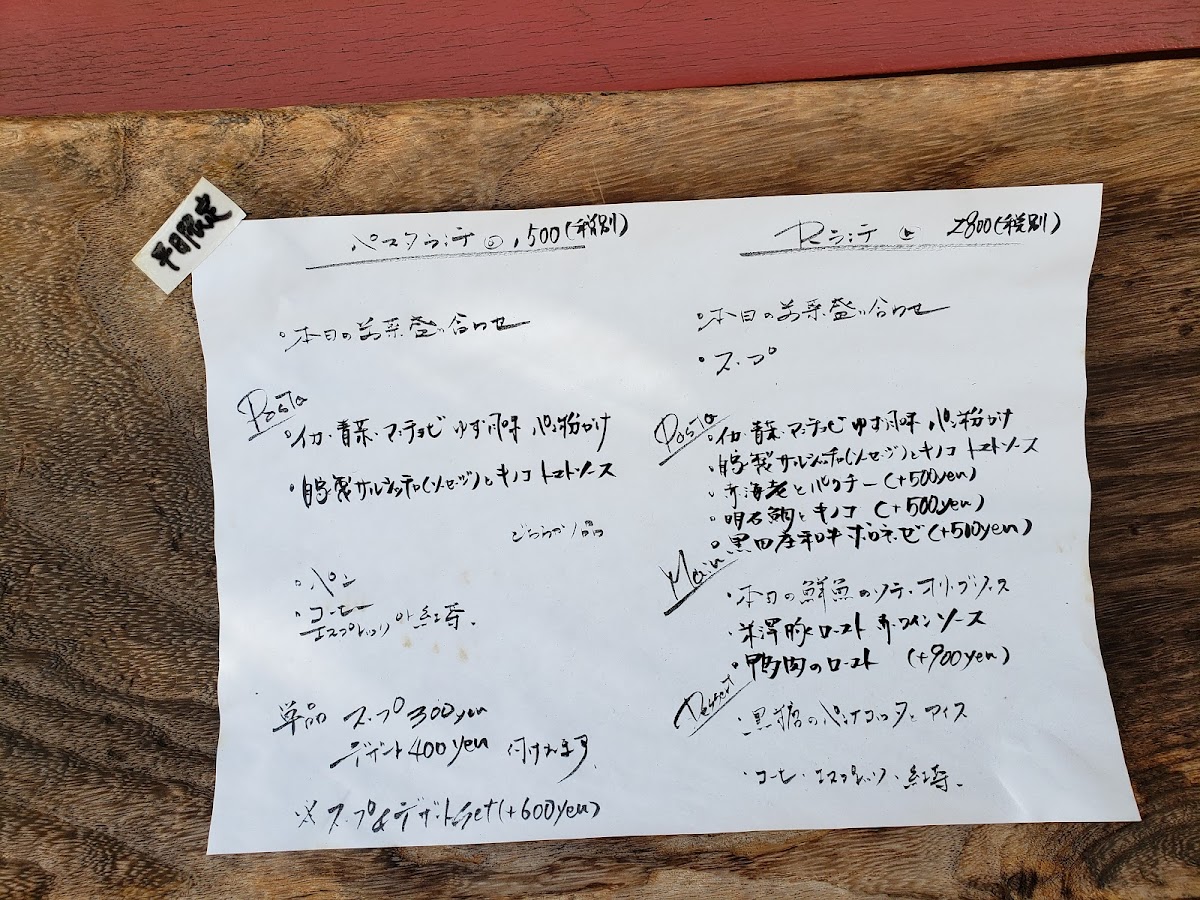 平日限定
パスタランチ 1,500(税別)
・本日の前菜盛り合わせ
Pasta
・イカ・青菜・アンチョビ ゆず風味 パン粉がけ
・自家製サルシッチャ(ソーセージ)とキノコ トマトソース
どちらか1品
・パン
・コーヒー
エスプレッソ or 紅茶.
単品 スープ 300yen
デザート 400yen 付けれます
※ スープ&デザートset(+600yen)
ランチ 2800(税別)
・本日の前菜盛り合わせ
・スープ
Pasta
・イカ・青菜・アンチョビ ゆず風味 パン粉がけ
・自家製サルシッチャ(ソーセージ)とキノコ トマトソース
・赤海老とパクチー (+500yen)
・明石鯛とキノコ (+500yen)
・黒田庄和牛ボロネーゼ (+510yen)
Main
・本日の鮮魚のソテー・オリーブソース
・米澤豚ロースト 赤ワインソース
・鴨肉のロースト (+900yen)
Dessert
・黒糖のパンナコッタとアイス
・コーヒー・エスプレッソ・紅茶.